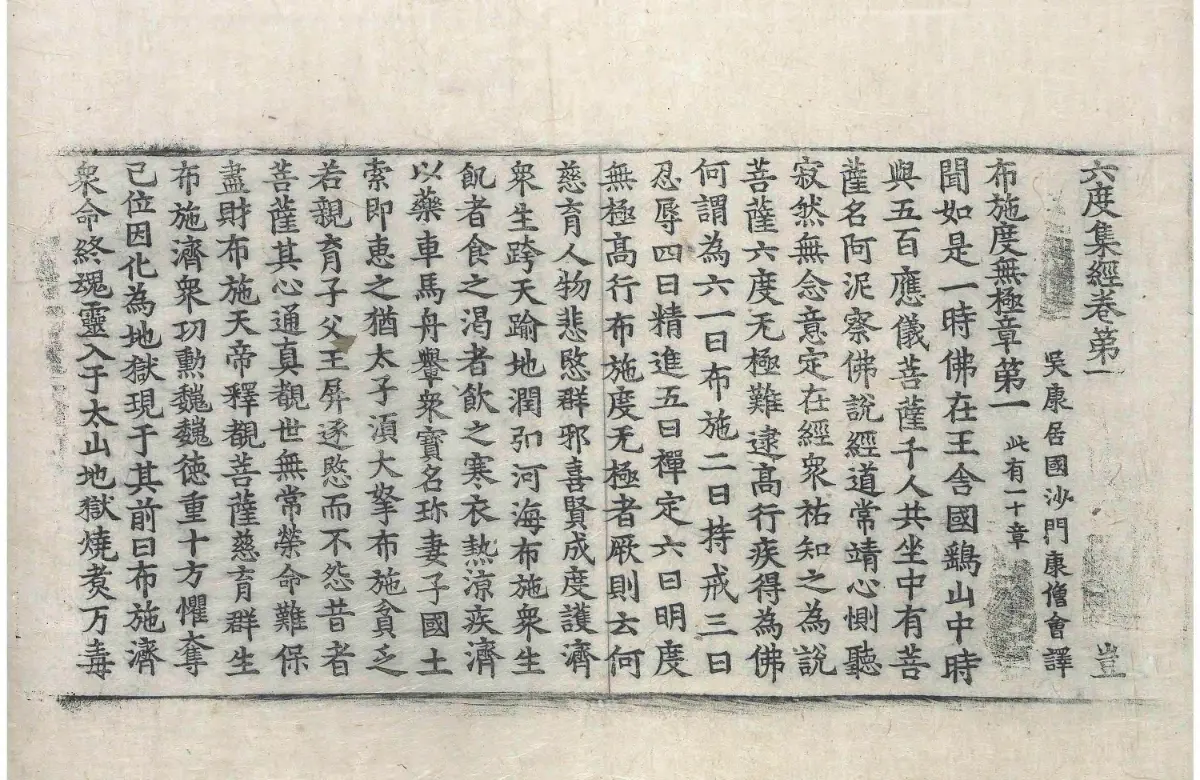 六度集經卷第一 豈
吳康居國沙門康僧會譯
布施度無極章第一 此有一十章
聞如是一時佛在王舍國鷂山中時
與五百應儀菩薩千人共坐中有菩
薩名阿泥察佛說經道常靖心惻聽
寂然無念意定在經衆祐知之為說
菩薩六度无極難逮高行疾得為佛
何謂為六一曰布施二曰持戒三曰
忍辱四曰精進五曰禪定六曰明度
無極高行布施度无極者厥則云何
慈育人物悲愍群邪喜賢成度護濟
衆生跨天踰地潤弘河海布施衆生
飢者食之渴者飲之寒衣熱涼疾濟
以藥車馬舟轝衆寶名珎妻子國土
索即惠之猶太子湏大拏布施貪乏
若親育子父王屏逐愍而不怨昔者
菩薩其心通真覩世無常榮命難保
盡財布施天帝釋覩菩薩慈育群生
布施濟衆功勳巍巍徳重十方懼奪
己位因化為地獄現于其前曰布施濟
衆命終䰟靈入于太山地獄燒煑万毒